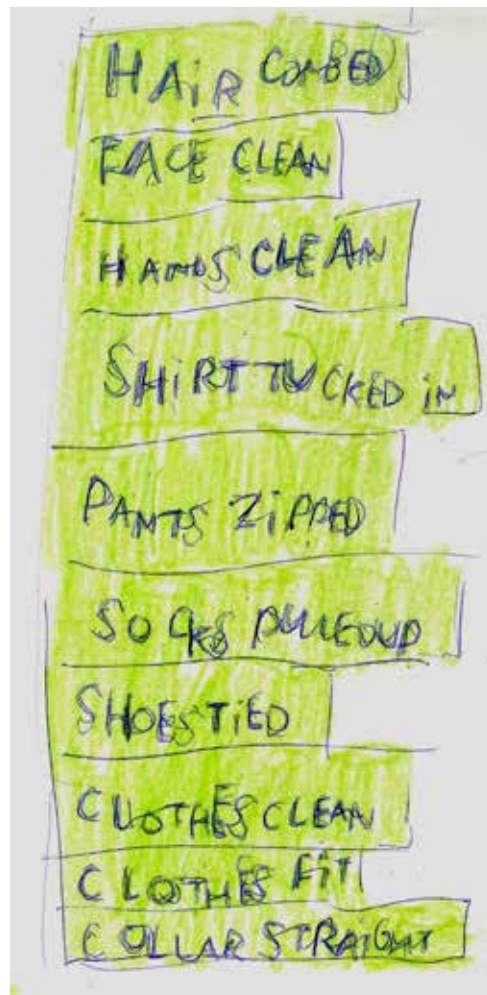 HAiR COMBED
FACE CLEAN
HANDS CLEAN
SHiRT TUCKED iN
PANTS ZiPPED
SOCKS PULLEDUP
SHOES TiED
CLOTHES CLEAN
CLOTHES FiT
COLLAR STRAiGHT